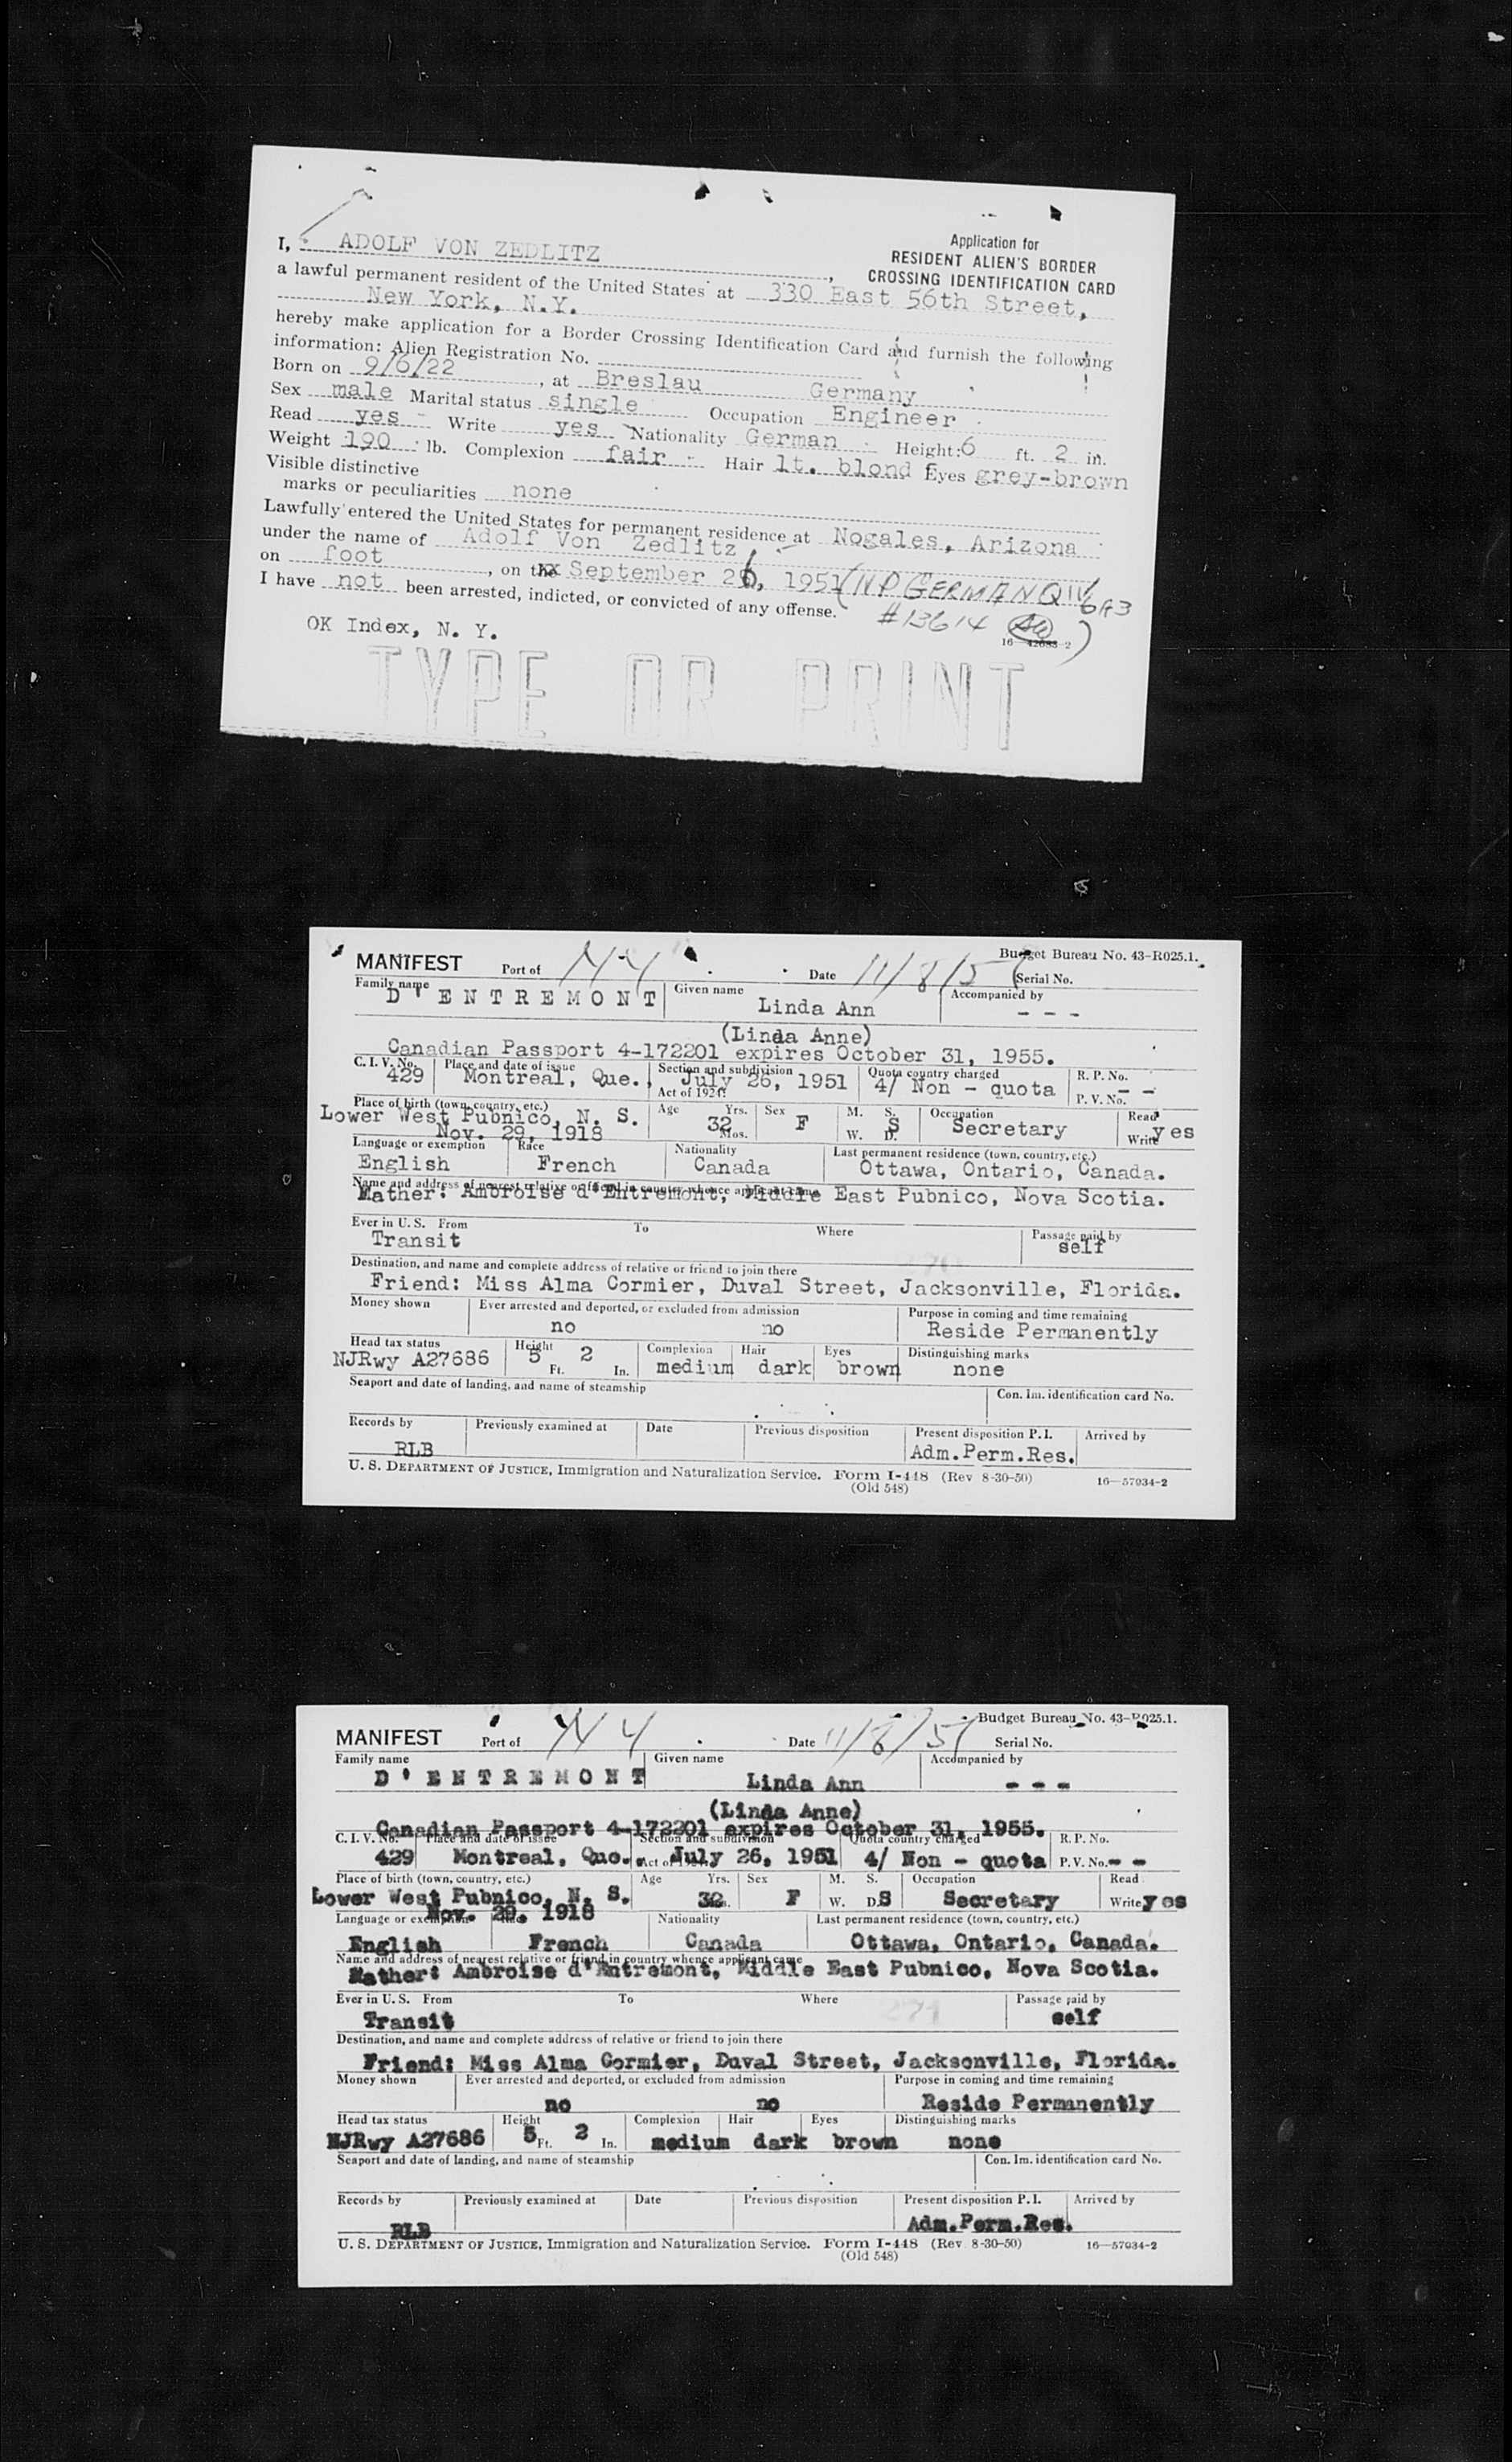 Application for
RESIDENT ALIEN'S BORDER
CROSSING IDENTIFICATION CARD
I, ADOLF VON ZEDLITZ,
a lawful permanent resident of the United States at 330 East 56th Street,
New York, N.Y.
hereby make application for a Border Crossing Identification Card and furnish the following
information: Alien Registration No.
Born on 9/6/22, at Breslau Germany
Sex male Marital status single Occupation Engineer
Read yes Write yes Nationality German Height: 6 ft. 2 in.
Weight 190 lb. Complexion fair Hair lt. blond Eyes grey-brown
Visible distinctive
marks or peculiarities none
Lawfully entered the United States for permanent residence at Nogales, Arizona
under the name of Adolf Von Zedlitz
on foot, on the September 26, 1951 (NP GERMAN QIV 6A3
I have not been arrested, indicted, or convicted of any offense. #13614 )
OK Index, N. Y.
16—42083-2
TYPE OR PRINT
Budget Bureau No. 43-R025.1.
MANIFEST Port of NY Date 11/8/51 Serial No.
Family name Given name Accompanied by
D'ENTREMONT Linda Ann - - -
(Linda Anne)
Canadian Passport 4-172201 expires October 31, 1955.
C. I. V. No. Place and date of issue Section and subdivision Quota country charged R. P. No.
429 Montreal, Que., July 26, 1951 4/ Non - quota - -
Act of 1924: P. V. No.
Place of birth (town, country, etc.) Age Yrs. Sex M. S. Occupation Read
Lower West Pubnico, N. S. 32 F S Secretary yes
Nov. 29, 1918 Mos. W. D. Write
Language or exemption Race Nationality Last permanent residence (town, country, etc.)
English French Canada Ottawa, Ontario, Canada.
Name and address of nearest relative or friend in country whence applicant came
Father: Ambroise d'Entremont, Middle East Pubnico, Nova Scotia.
Ever in U. S. From To Where Passage paid by
Transit self
Destination, and name and complete address of relative or friend to join there
Friend: Miss Alma Cormier, Duval Street, Jacksonville, Florida.
Money shown Ever arrested and deported, or excluded from admission Purpose in coming and time remaining
no no Reside Permanently
Head tax status Height Complexion Hair Eyes Distinguishing marks
NJRwy A27686 5 Ft. 2 In. medium dark brown none
Seaport and date of landing, and name of steamship Con. Im. identification card No.
Records by Previously examined at Date Previous disposition Present disposition P. I. Arrived by
RLB Adm.Perm.Res.
U. S. DEPARTMENT OF JUSTICE, Immigration and Naturalization Service. Form I-448 (Rev 8-30-50) 16—57934-2
(Old 548)
Budget Bureau No. 43-R025.1.
MANIFEST Port of NY Date 11/8/51 Serial No.
Family name Given name Accompanied by
D'ENTREMONT Linda Ann - - -
(Linda Anne)
Canadian Passport 4-172201 expires October 31, 1955.
C. I. V. No. Place and date of issue Section and subdivision Quota country charged R. P. No.
429 Montreal, Que. Act of July 26, 1951 4/ Non - quota P. V. No. - -
Place of birth (town, country, etc.) Age Yrs. Sex M. S. Occupation Read
Lower West Pubnico, N. S. 32 F W. D. S Secretary Write yes
Nov. 29. 1918
Language or exemption Nationality Last permanent residence (town, country, etc.)
English French Canada Ottawa, Ontario, Canada.
Name and address of nearest relative or friend in country whence applicant came
Father: Ambroise d'Entremont, Middle East Pubnico, Nova Scotia.
Ever in U. S. From To Where 271 Passage paid by
Transit self
Destination, and name and complete address of relative or friend to join there
Friend: Miss Alma Cormier, Duval Street, Jacksonville, Florida.
Money shown Ever arrested and deported, or excluded from admission Purpose in coming and time remaining
no no Reside Permanently
Head tax status Height Complexion Hair Eyes Distinguishing marks
NJRwy A27686 5 Ft. 2 In. medium dark brown none
Seaport and date of landing, and name of steamship Con. Im. identification card No.
Records by Previously examined at Date Previous disposition Present disposition P. I. Arrived by
RLB Adm.Perm.Res.
U. S. DEPARTMENT OF JUSTICE, Immigration and Naturalization Service. Form I-448 (Rev 8-30-50) 16—57934-2
(Old 548)